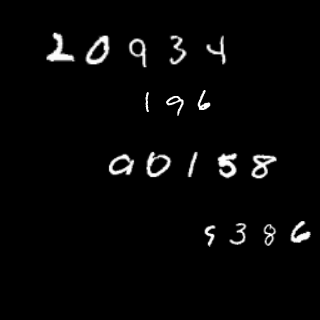 20934
196
00158
9386